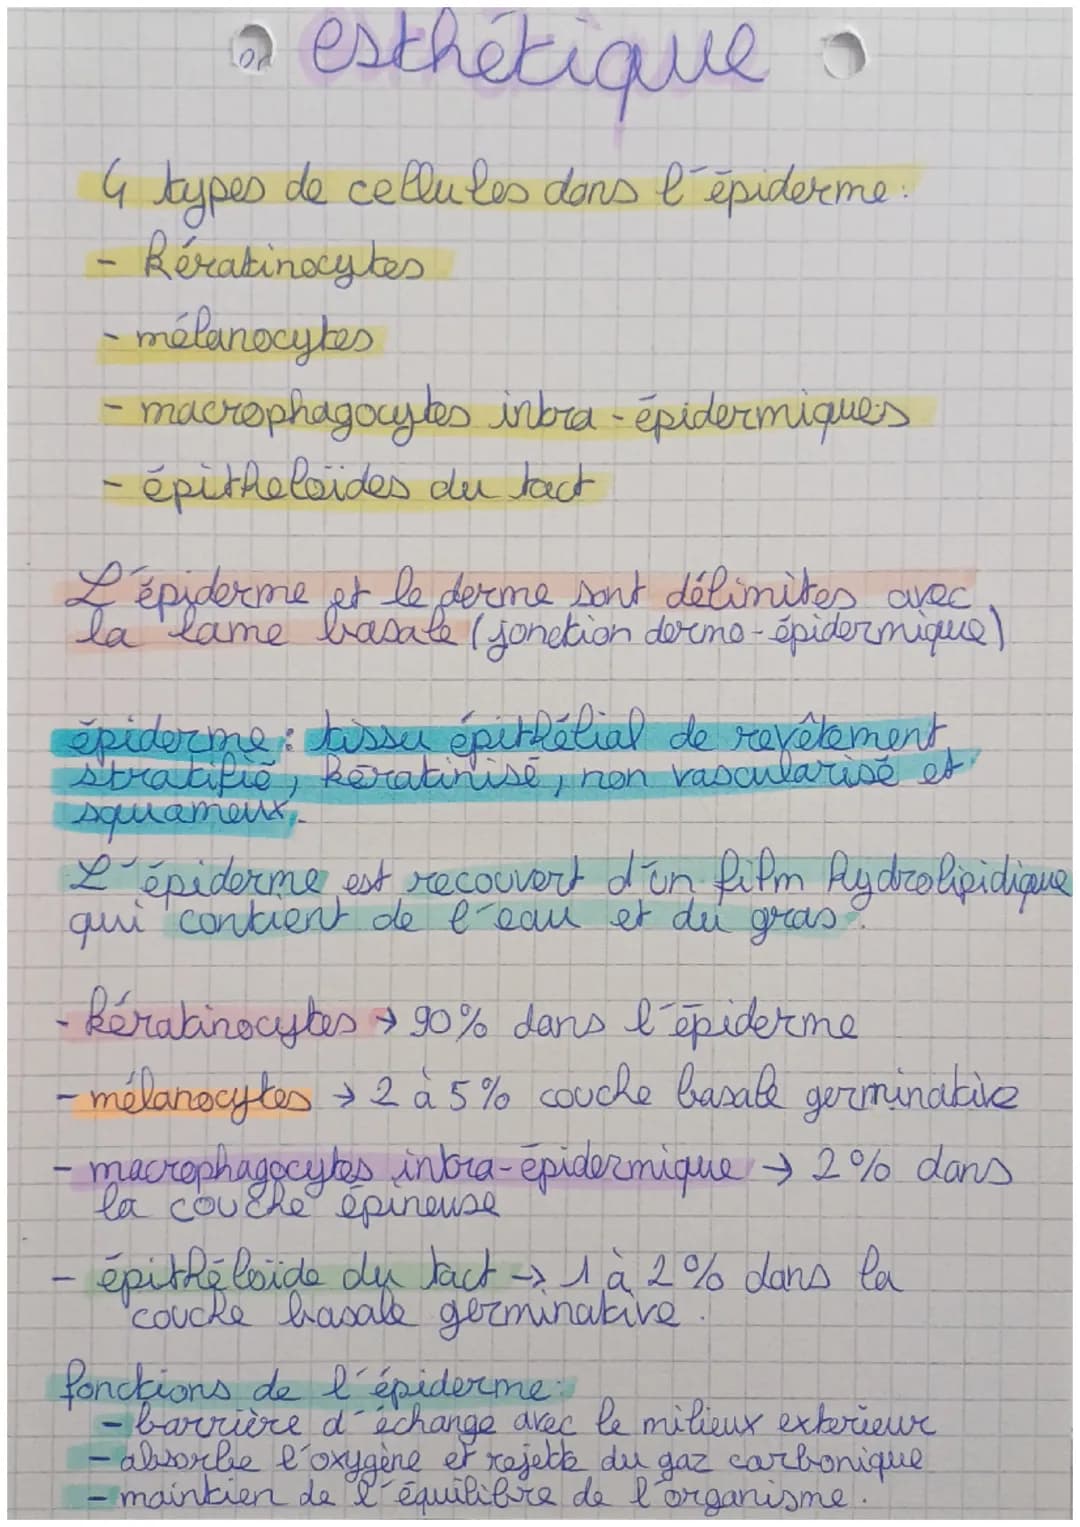 esthétique
4 types de cellules dans l'épiderme :
- kératinocytes
- mélanocytes
- macrophagocytes intra-épidermiques
- épitheloïdes du tact
L'épiderme et le derme sont délimités avec
la lame basale (jonction dermo-épidermique)
épiderme : tissu épithélial de revêtement
stratifié, kératinisé, non vascularisé et
squameux.
L'épiderme est recouvert d'un film hydrolipidique
qui contient de l'eau et du gras.
- kératinocytes → 90% dans l'épiderme
- mélanocytes → 2 à 5% couche basale germinative
- macrophagocytes intra-épidermique → 2% dans
la couche épineuse
- épithéloïde du tact → 1 à 2% dans la
couche basale germinative.
fonctions de l'épiderme :
- barrière d'échange avec le milieux exterieur
- absorbe l'oxygène et rejette du gaz carbonique
- maintien de l'équilibre de l'organisme.